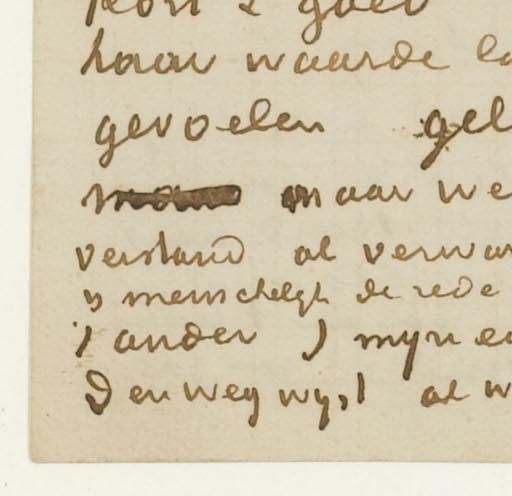 kort & goed
haar waarde
gevoelen gel
maar we
verstand al verwar
is menschelijk de rede
ander ) myn
Den weg wyst al w